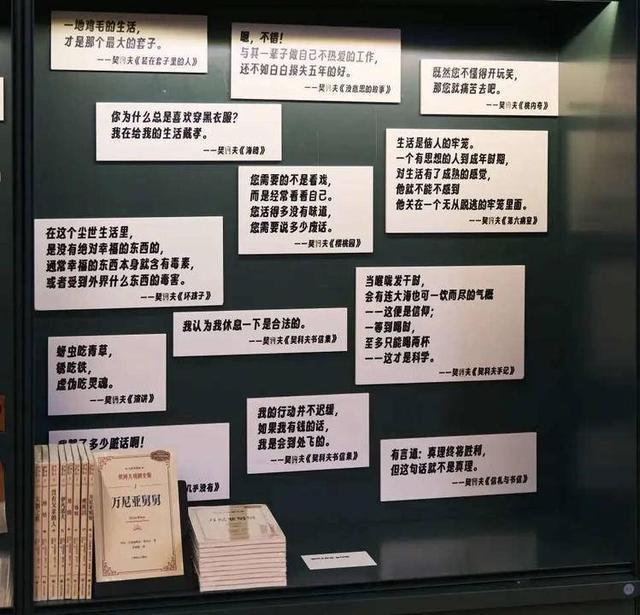 一地鸡毛的生活，
才是那个最大的套子。
——契诃夫《装在套子里的人》
嗯，不错！
与其一辈子做自己不热爱的工作，
还不如白白损失五年的好。
——契诃夫《没意思的故事》
既然您不懂得开玩笑，
那您就痛苦去吧。
——契诃夫《桃内夸》
你为什么总是喜欢穿黑衣服？
我在给我的生活戴孝。
——契诃夫《海鸥》
生活是恼人的牢笼。
一个有思想的人到成年时期，
对生活有了成熟的感觉，
他就不能不感到
他关在一个无从脱逃的牢笼里面。
——契诃夫《第六病室》
您需要的不是看戏，
而是经常看看自己。
您活得多没有味道，
您需要说多少废话。
——契诃夫《樱桃园》
在这个尘世生活里，
是没有绝对幸福的东西的，
通常幸福的东西本身就含有毒素，
或者受到外界什么东西的毒害。
——契诃夫《坏孩子》
当喉咙发干时，
会有连大海也可一饮而尽的气概
——这便是信仰；
一等到喝时，
至多只能喝两杯
——这才是科学。
——契诃夫《契科夫手记》
我认为我休息一下是合法的。
——契诃夫《契科夫书信集》
蚜虫吃青草，
锈吃铁，
虚伪吃灵魂。
——契诃夫《演讲》
我的行动并不迟缓，
如果我有钱的话，
我是会到处飞的。
——契诃夫《契科夫书信集》
有言道：真理终将胜利，
但这句话就不是真理。
——契诃夫《信札与书信》
多少脏话啊！
几乎没有》
万尼亚舅舅
万尼亚舅舅